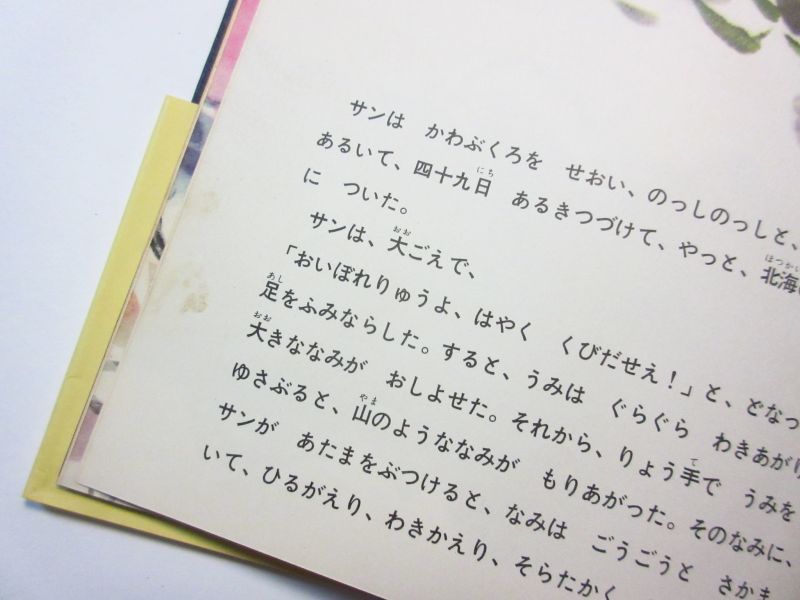 サンは　かわぶくろを　せおい、のっしのっしと、
あるいて、四十九日　あるきつづけて、やっと、北海
に　ついた。
サンは、大ごえで、
「おいぼれりゅうよ、はやく　くびだせえ！」と、どなっ
足をふみならした。すると、うみは　ぐらぐら　わきあがり
大きななみが　おしよせた。それから、りょう手で　うみを
ゆさぶると、山のようななみが　もりあがった。そのなみに、
サンが　あたまをぶつけると、なみは　ごうごうと　さかま
いて、ひるがえり、わきかえり、そらたかく